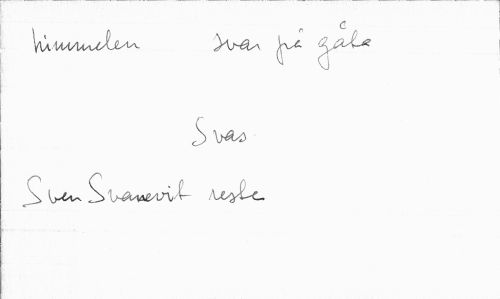 himmelen svar på gåta
Svas
Sven Svanevit reste